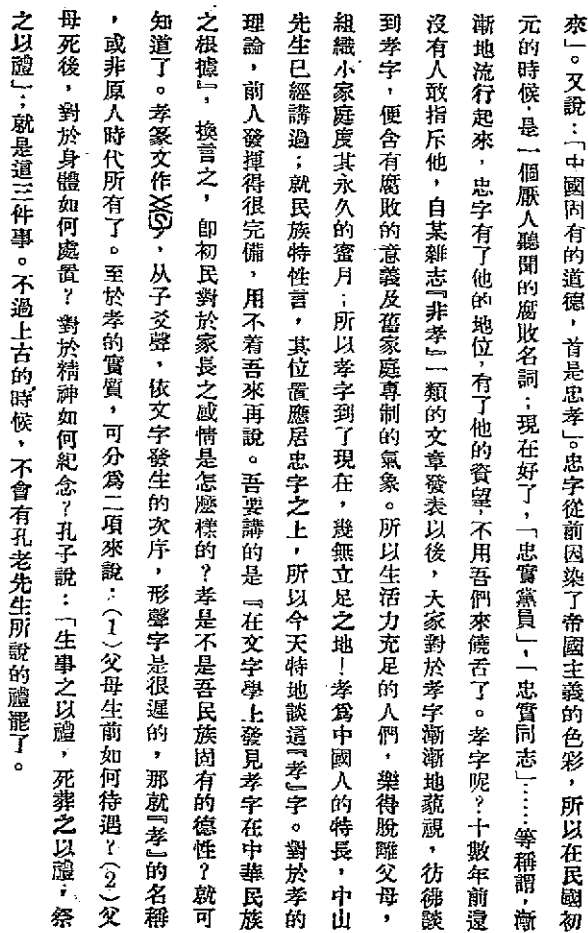 來」。又說：「中國固有的道德，首是忠孝」。忠字從前因染了帝國主義的色彩，所以在民國初
元的時候，是一個厭人聽聞的腐敗名詞；現在好了，「忠實黨員」，「忠實同志」……等稱謂，漸
漸地流行起來，忠字有了他的地位，有了他的資望，不用吾們來饒舌了。孝字呢？十數年前還
沒有人敢指斥他，自某雜志『非孝』一類的文章發表以後，大家對於孝字漸漸地藐視，彷彿談
到孝字，便含有腐敗的意義及舊家庭專制的氣象。所以生活力充足的人們，樂得脫離父母，
組織小家庭度其永久的蜜月；所以孝字到了現在，幾無立足之地！孝爲中國人的特長，中山
先生已經講過；就民族特性言，其位置應居忠字之上，所以今天特地談這『孝』字。對於孝的
理論，前人發揮得很完備，用不着吾來再說。吾要講的是『在文字學上發見孝字在中華民族
之根據』，換言之，卽初民對於家長之感情是怎麼樣的？孝是不是吾民族固有的德性？就可
知道了。孝篆文作，从子爻聲，依文字發生的次序，形聲字是很遲的，那就『孝』的名稱
，或非原人時代所有了。至於孝的實質，可分爲二項來說：（1）父母生前如何待遇？（2）父
母死後，對於身體如何處置？對於精神如何紀念？孔子說：「生事之以禮，死葬之以禮，祭
之以禮」；就是這三件事。不過上古的時候，不會有孔老先生所說的禮罷了。